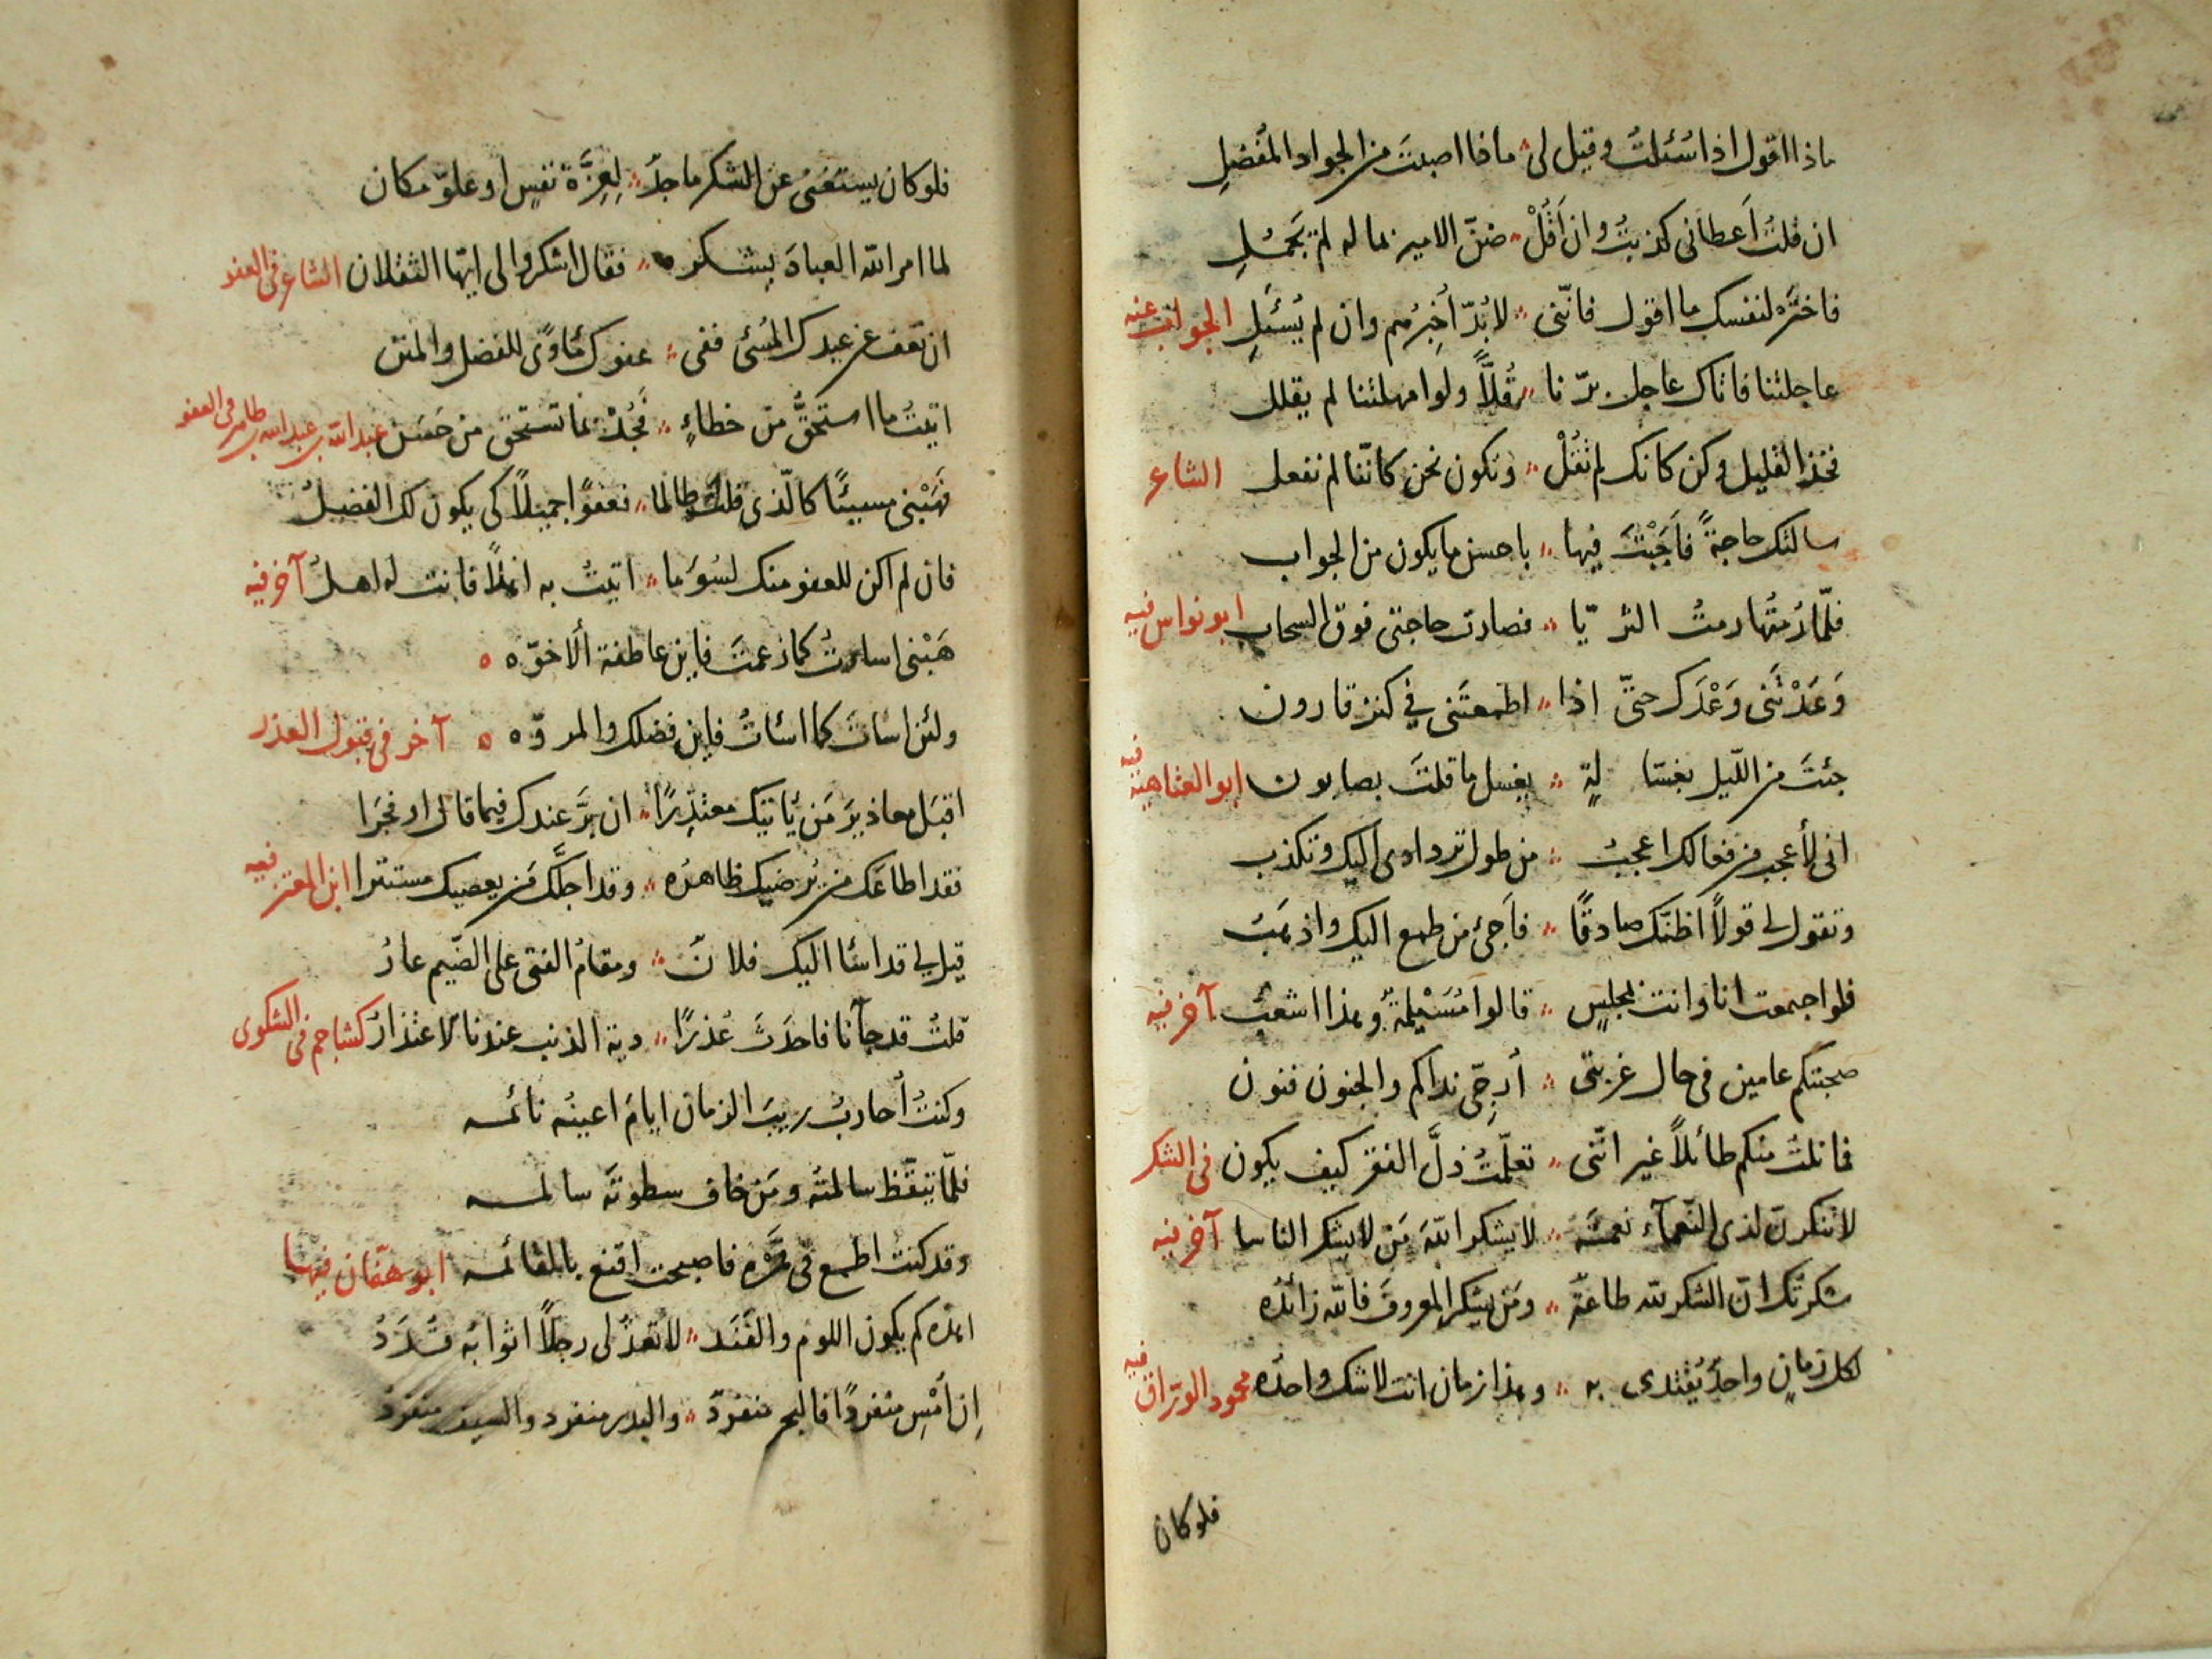 ماذا اقول اذا سُئلتُ وقيل لى ماذا اصبتَ من الجواد المُفضلِ
ان قلتُ اَعطانى كذبتُ وان اَقُلْ ضنّ الامير بماله لم يَجمُلِ
فاختره لنفسك ما اقول فانّنى لابُدّ اُخبِرُهم وان لم يُسئَلِ الجواب عنه
عاجلتنا فاتاك عاجل برّنا قُلاًّ ولو امهلتنا لم يقلل
فخذ القليل وكن كانك لم تقُلْ ونكون نحن كانّنا لم نفعل الشاعر
سالتك حاجةً فاَجَبْتَ فيها باحسن ما يكون من الجواب
فلمّا رُمتُها رمتُ الثريّا فصارت حاجتى فوق السحاب ابو نواس فيه
وَعَدْتَنى وَعْدَك حتّى اذا اطمعتَنى في كنز قارون
جئتَ من اللّيل بغسّالةٍ يغسل ما قلتَ بصابون ابو العتاهية فيه
انى لأعجب من فعالك اعجبُ من طول تردادى اليك وتكذب
وتقول لى قولاً اظنّك صادقًا فاَجئ من طمع اليك واذهَبُ
فلو اجمعت انا وانت بمجلسٍ قالوا مُسَيْلمةٌ وهذا اشعَبُ آخر فيه
صحبتكم عامين فى حال غربتى اُرجّى نداكم والجنون فنون
فما نلتُ منكم طائلاً غير انّنى تعلّمتُ ذلَّ الفقر كيف يكون فى الشكر
لا تنكرنّ لذى النّعمآء نعمتَه لا يشكر اللّهَ مَن لا يشكر الناسا آخر فيه
شكرتُك انّ الشكر للّه طاعةٌ ومَن يشكر المعروفَ فاللّه زائدُه
لكل زمانٍ واحدٌ يُقتدى به وهذا زمان انت لا شك واحدُه محمود الورّاق فيه
فلوكان
فلو كان يستغنى عن الشكر ماجدٌ لِعِزَّة نفسٍ او علوّ مكان
لما امر اللّه العبادَ بشكره فقال اشكروا لى ايّها الثقلان الشاعر فى العفو
ان تعف عن عبدك المُسئ ففى عفوك مأوًى للفضل والمنن
اتيتُ ما استحقُّ من خطاءٍ فجُدْ بما تستحق من حَسَن عبد اللّه بن عبد اللّه بن طاهر فى العفو
فهَبْنى مسيئًا كالّذى قلتَ ظالما فعفوًا جميلاً كى يكون لك الفضلُ
فان لم اكن للعفو منك لسُوءِ ما اتيتُ به اهلاً فانت له اهلُ آخر فيه
هَبْنى اساءتُ كما زعمتَ فاين عاطفة الاُخوّه
ولئن اسات كما اسئاتُ فاين فضلك والمروّه آخر فى قبول العذر
اقبَل معاذيرَ مَن يأتيك معتذِرًا ان بَرَّ عندك فيما قال او فجَرا
فقد اطاعَك من يُرضيك ظاهرُه وقد اجلَّك مَن يعصيك مستترا ابن المعتز فيه
قيل لى قد اسئا اليك فلانٌ ومقامُ الفتى على الضّيم عارُ
قلتُ قد جآنا فاحدَثَ عُذرًا دية الذنب عندنا الاعتذارُ كشاجم فى الشكوى
وكنتُ اُحاربُ ريبَ الزمان ايامَ اعينُه نائمه
فلمّا تيقّظ سالمتُه ومَن خاف سطوتَه سالمه
وقد كنت اطمع فى مَرّه فاصبحت اقنع بالقائمه ابو هفّان فيها
اهذه كم يكون اللوم والفَنَد لا تعذُلى رجلاً اثوابُه قُدَدُ
اِن اُمْسِ منفردًا فالبحر منفردٌ والبدر منفرد والسيف منفردُ